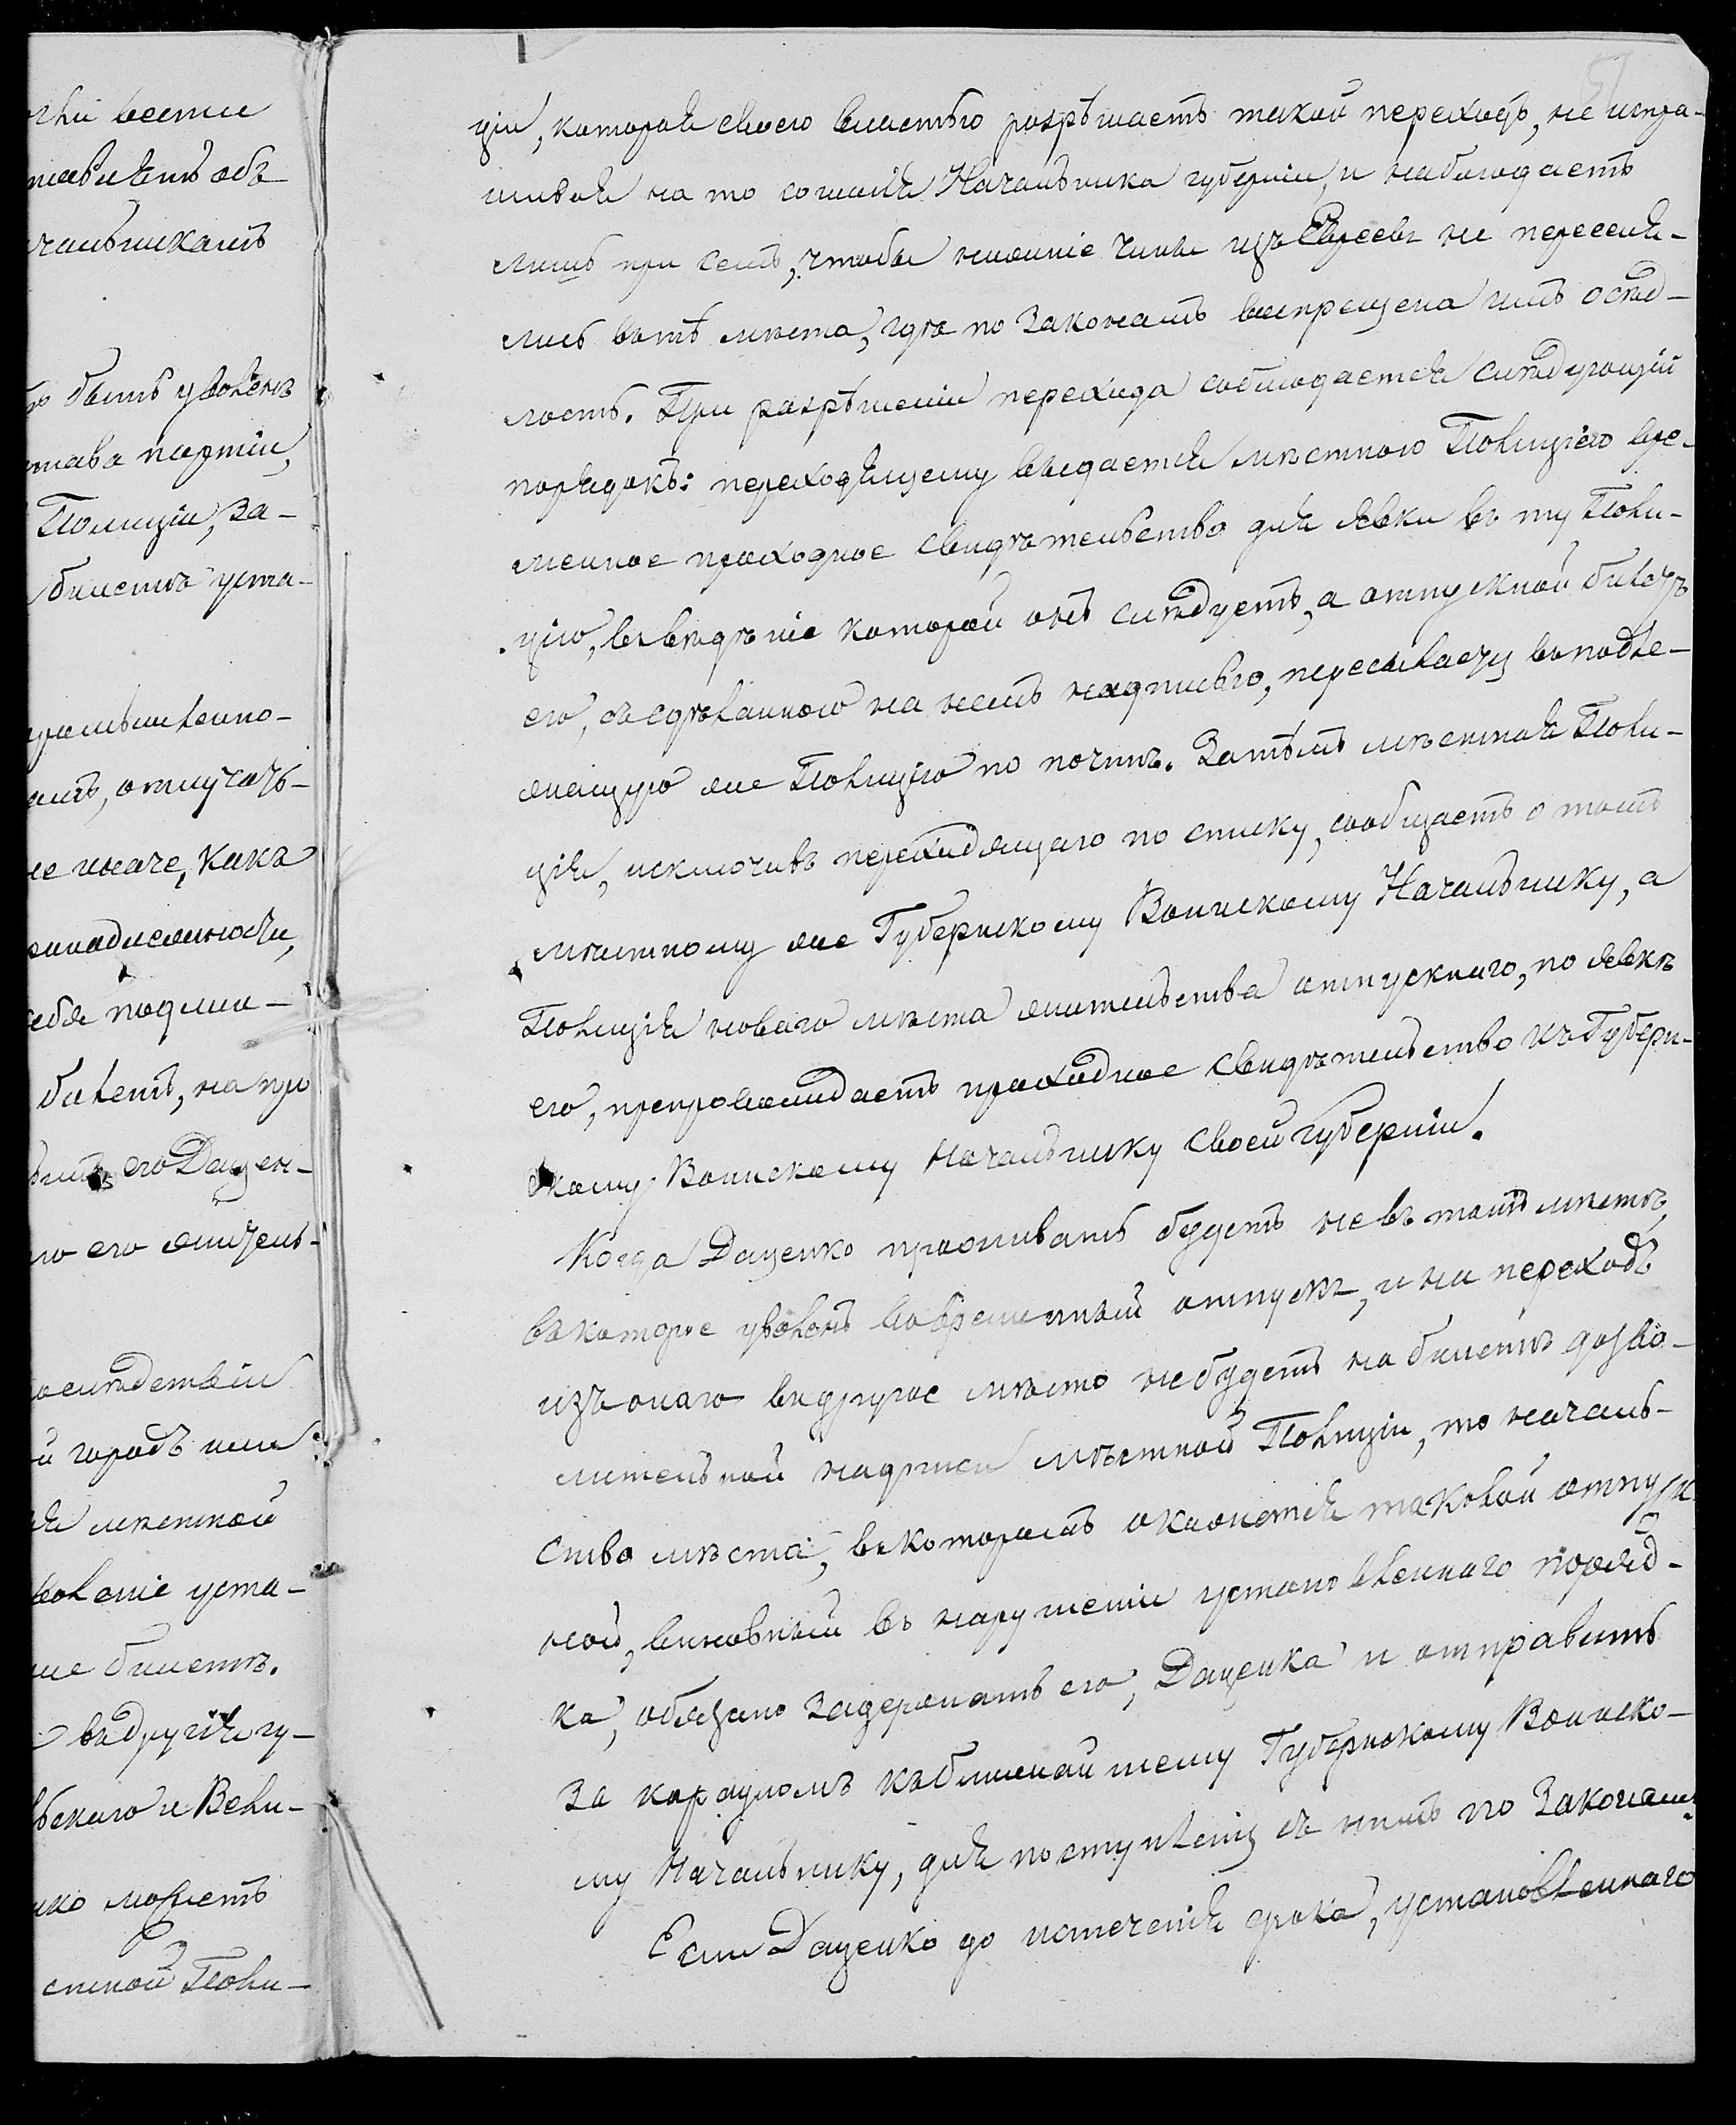 очки вести
тавляетъ объ
чальникамъ
быть уволенъ
става партіи,
Полиціи, за-
билетъ уста-
амъ, отлучать-
не иначе, какъ
себя подли-
билетъ, на пра
его Дацен-
ло его житель-
послѣдствіи
й городъ или
мѣстной
воленіе уста-
билетъ.
въ другія гу-
скаго и Вели-
нко можетъ
стной Поли-
51
ціи, которая своею властью разрѣшаетъ такой переходъ, не испра-
шивая на то согласія Начальника губерніи, и наблюдаетъ
лишь при семъ, чтобы нижніе чины изъ Евреевъ не переселя-
лись въ тѣ мѣста, гдѣ по Законамъ воспрещена имъ осѣд-
лость. При разрѣшеніи перехода соблюдается слѣдующій
порядокъ: переходящему выдается мѣстною Полиціею вре-
менное проходное свидѣтельство для явки въ ту Поли-
цію, въ вѣдѣніе которой онъ слѣдуетъ, а отпускной билетъ
его, съ сдѣланною на немъ надписью, пересылаетъ въ подле-
жащую же Полицію по почтѣ. Затѣмъ мѣстная Поли-
ція, исключивъ переходящаго по списку, сообщаетъ о томъ
мѣстному же Губернскому Воинскому Начальнику, а
Полиція новаго мѣста жительства отпускнаго, по явкѣ
его, препровождаетъ проходное свидѣтельство къ Губерн-
скому Воинскому Начальнику своей губерніи.
Когда Даценко проживать будетъ не въ томъ мѣстѣ,
въ которое уволенъ во временный отпускъ, и на переходъ
изъ онаго въ другое мѣсто не будетъ на билетѣ дозво-
лительной надписи мѣстной Полиціи, то началь-
ство мѣста, въ которомъ окажется таковой отпуск-
ной, виновный въ нарушеніи установленнаго поряд-
ка, обязано задержать его, Даценка и отправить
за карауломъ къ ближайшему Губернскому Воинско-
му Начальнику, для поступленія съ нимъ по Законамъ.
Если Даценко до истеченія срока, установленнаго